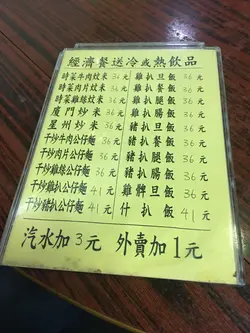 經濟餐送冷或熱飲品
時菜牛肉炆米 36元 雞扒旦飯 36元
時菜肉片炆米 36元 雞扒餐飯 36元
時菜雞絲炆米 36元 雞扒腿飯 36元
廈門炒米 36元 雞扒腸飯 36元
星州炒米 36元 豬扒旦飯 36元
干炒牛肉公仔麵 36元 豬扒餐飯 36元
干炒肉片公仔麵 36元 豬扒腿飯 36元
干炒雞絲公仔麵 36元 豬扒腸飯 36元
干炒雞扒公仔麵 41元 雞髀旦飯 36元
干炒豬扒公仔麵 41元 什扒飯 41元
汽水加3元 外賣加1元